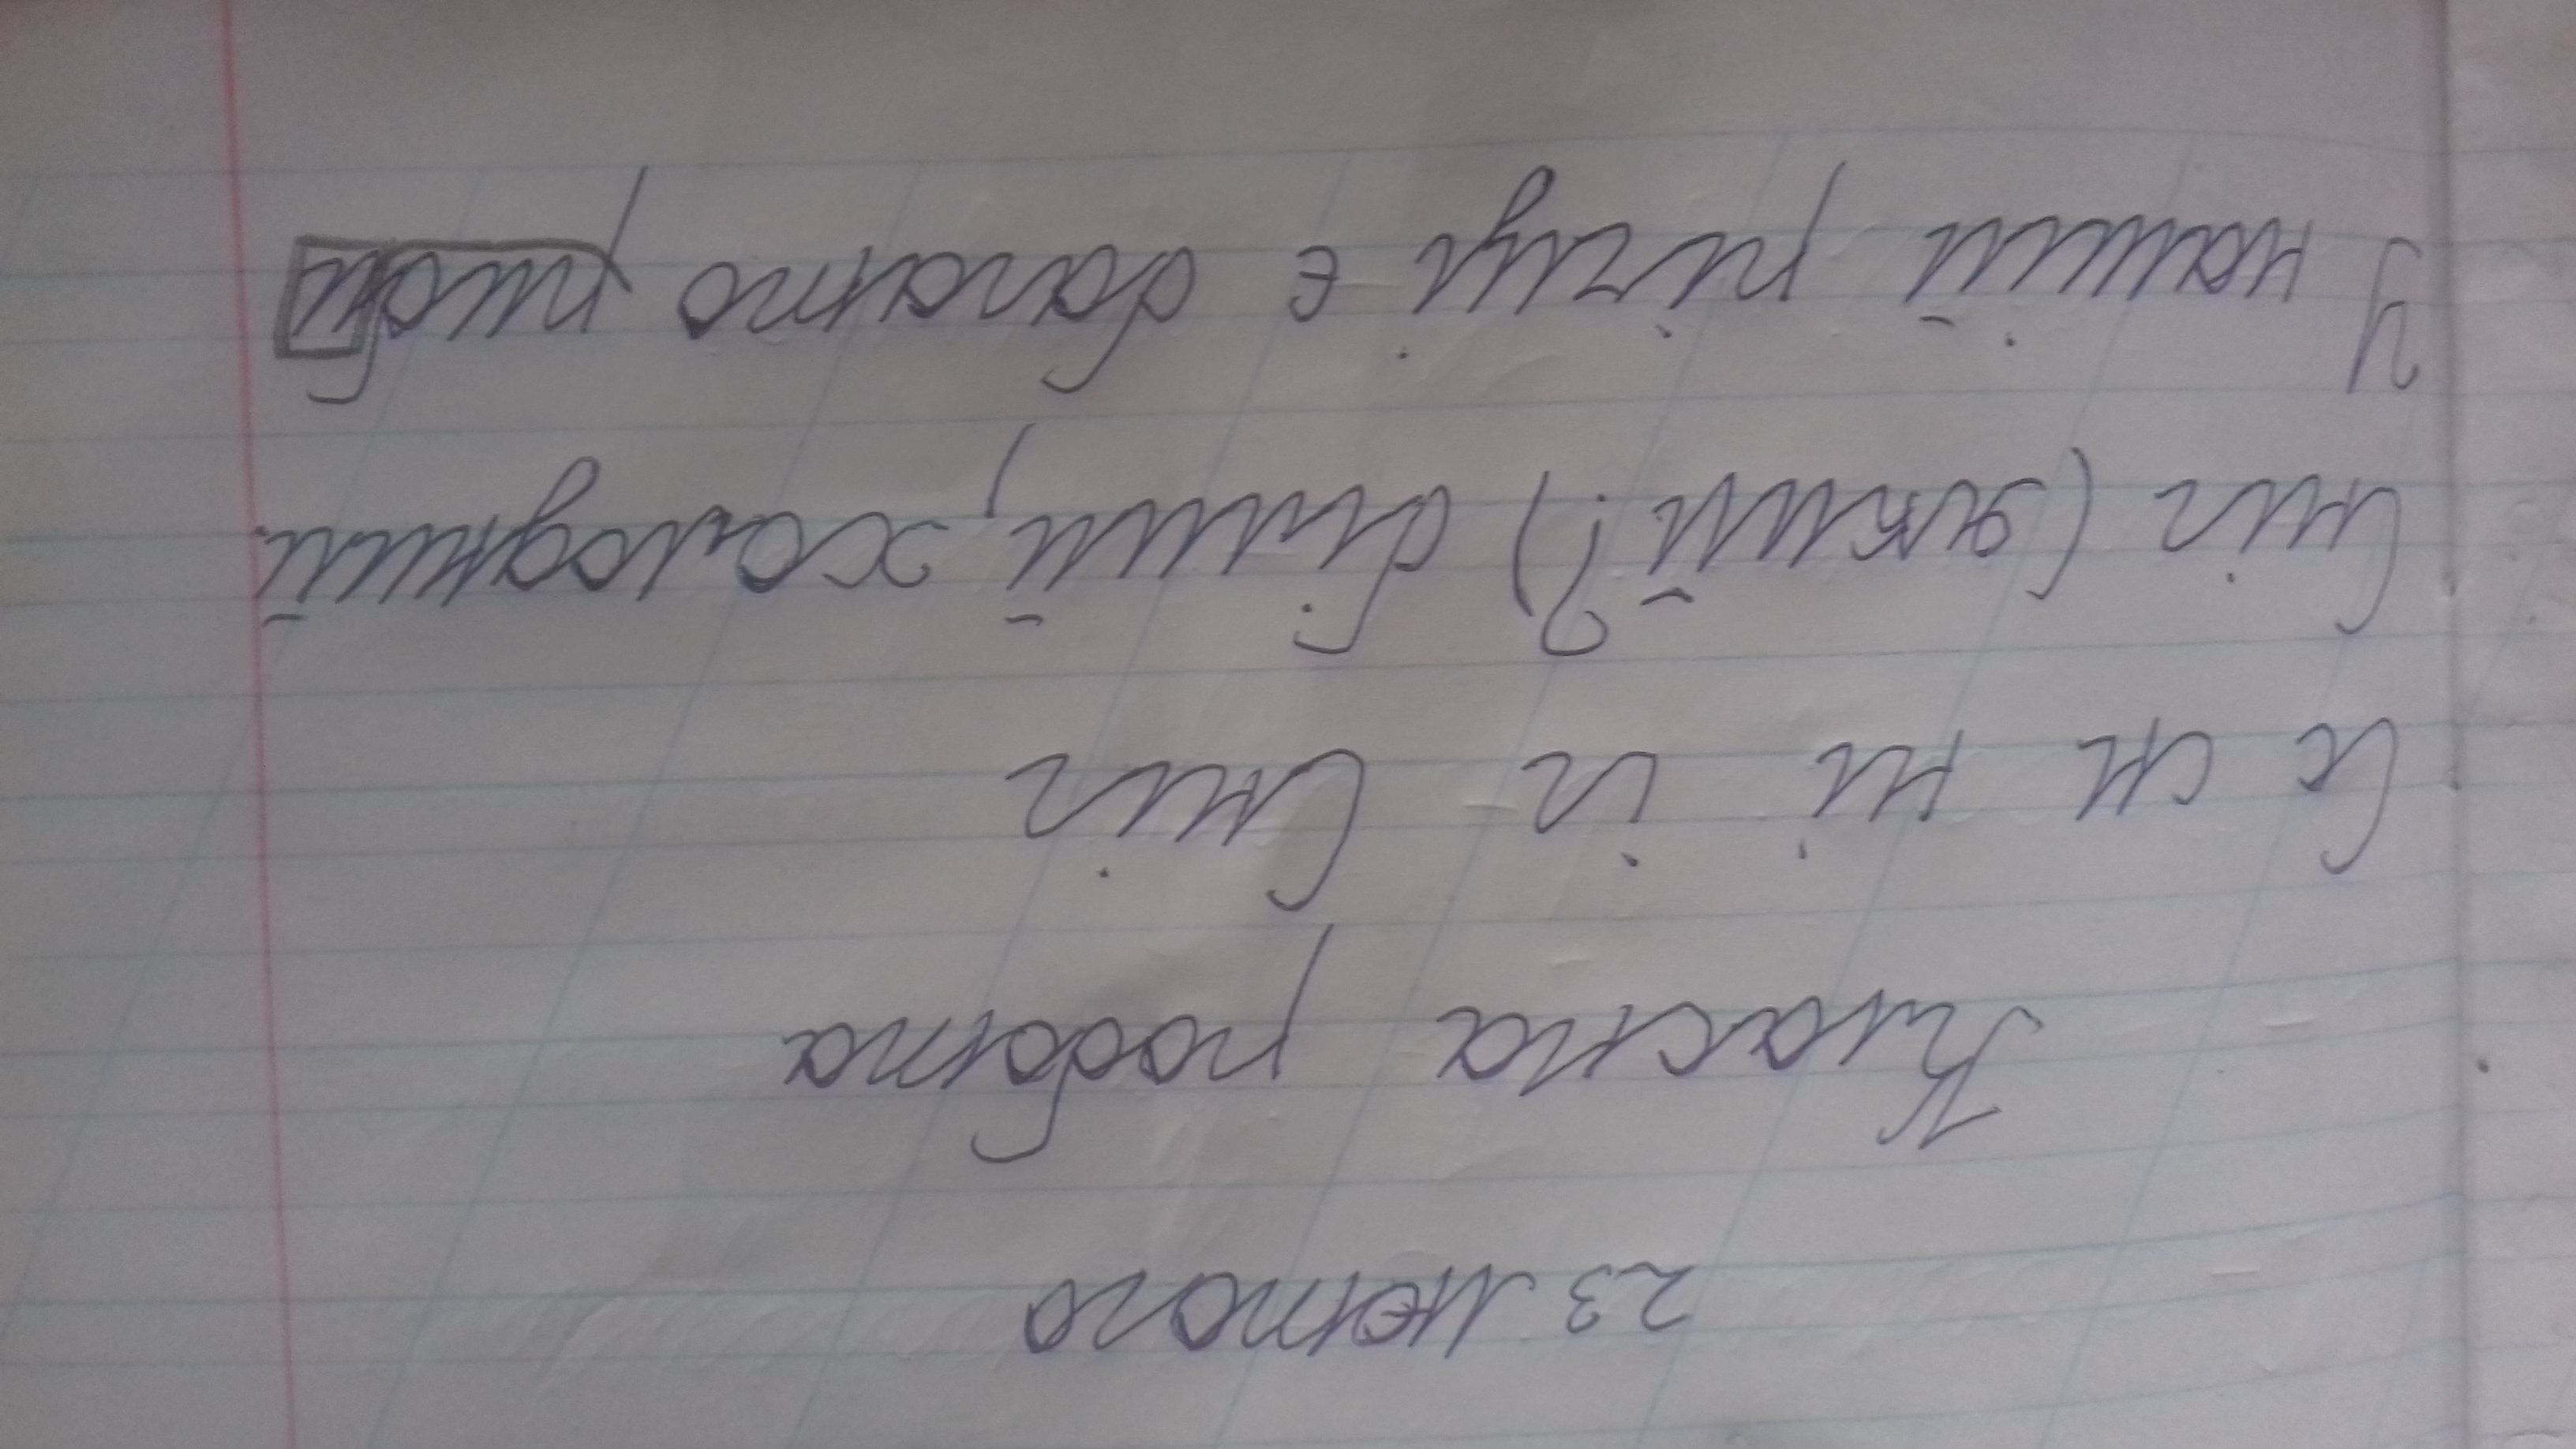 23 лютого
Класна робота
С с н і г Сніг
Сніг (який?) білий, холодний
У нашій річці є багато риби